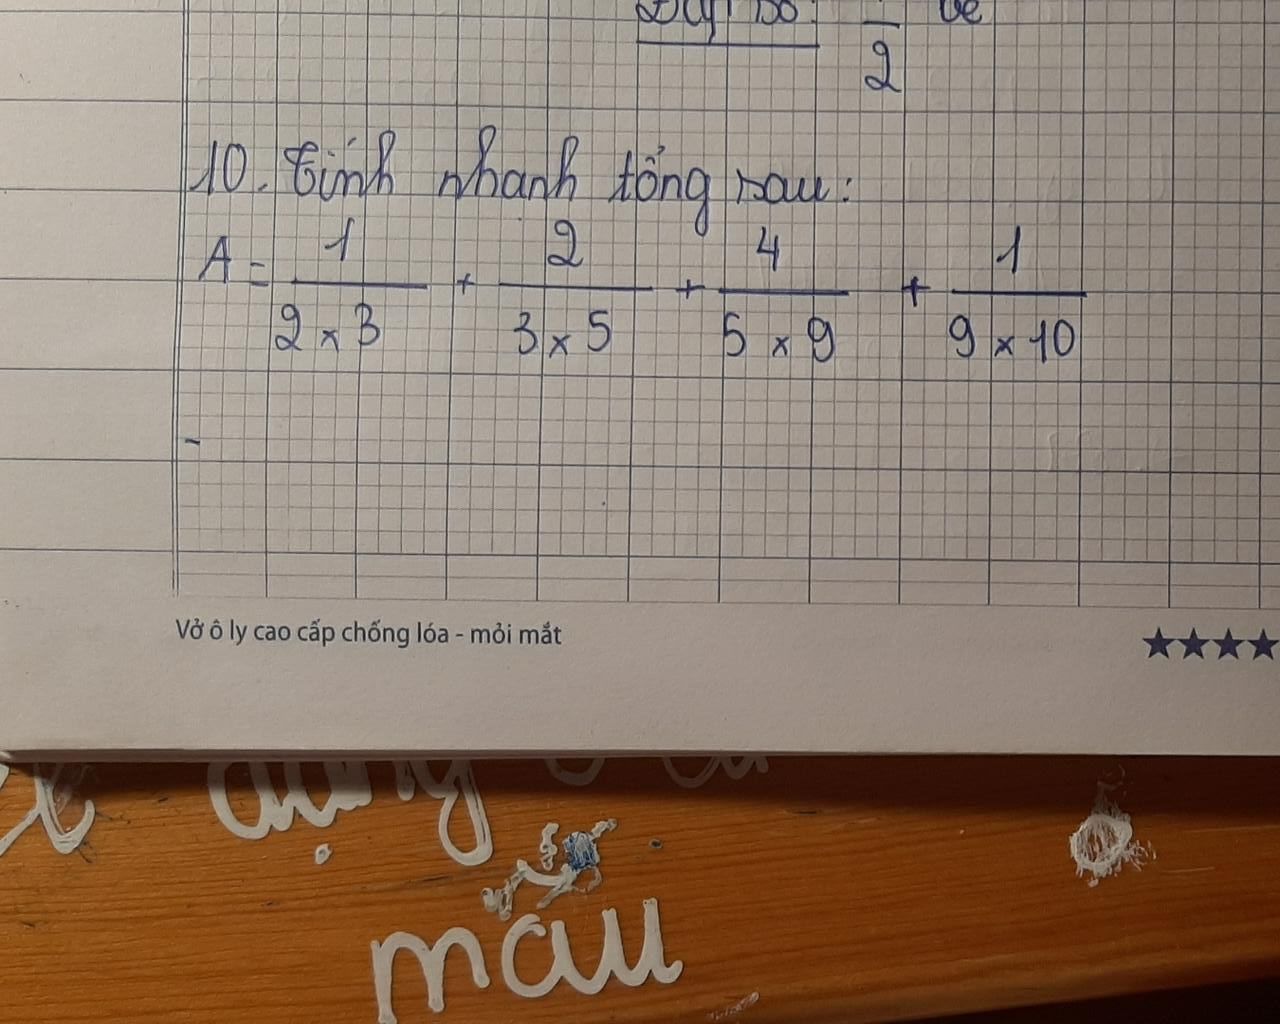 2
10. Tính nhanh tổng sau:
A = 1/(2 × 3) + 2/(3 × 5) + 4/(5 × 9) + 1/(9 × 10)
-
Vở ô ly cao cấp chống lóa - mỏi mắt
★★★★
dụng
mẫu